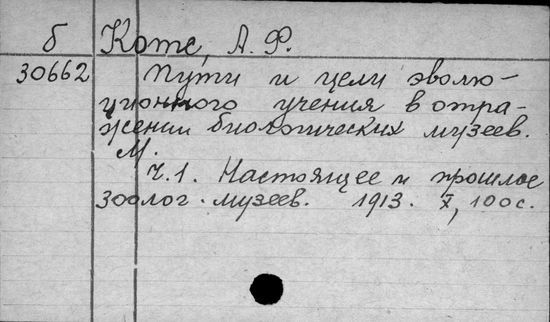 б Котс, А. Ф.
30662 Пути и цели эволю-
ционного учения в отра-
жении биологических музеев.
М.
Ч.1. Настоящее и прошлое
зоолог. музеев. 1913. X, 100с.